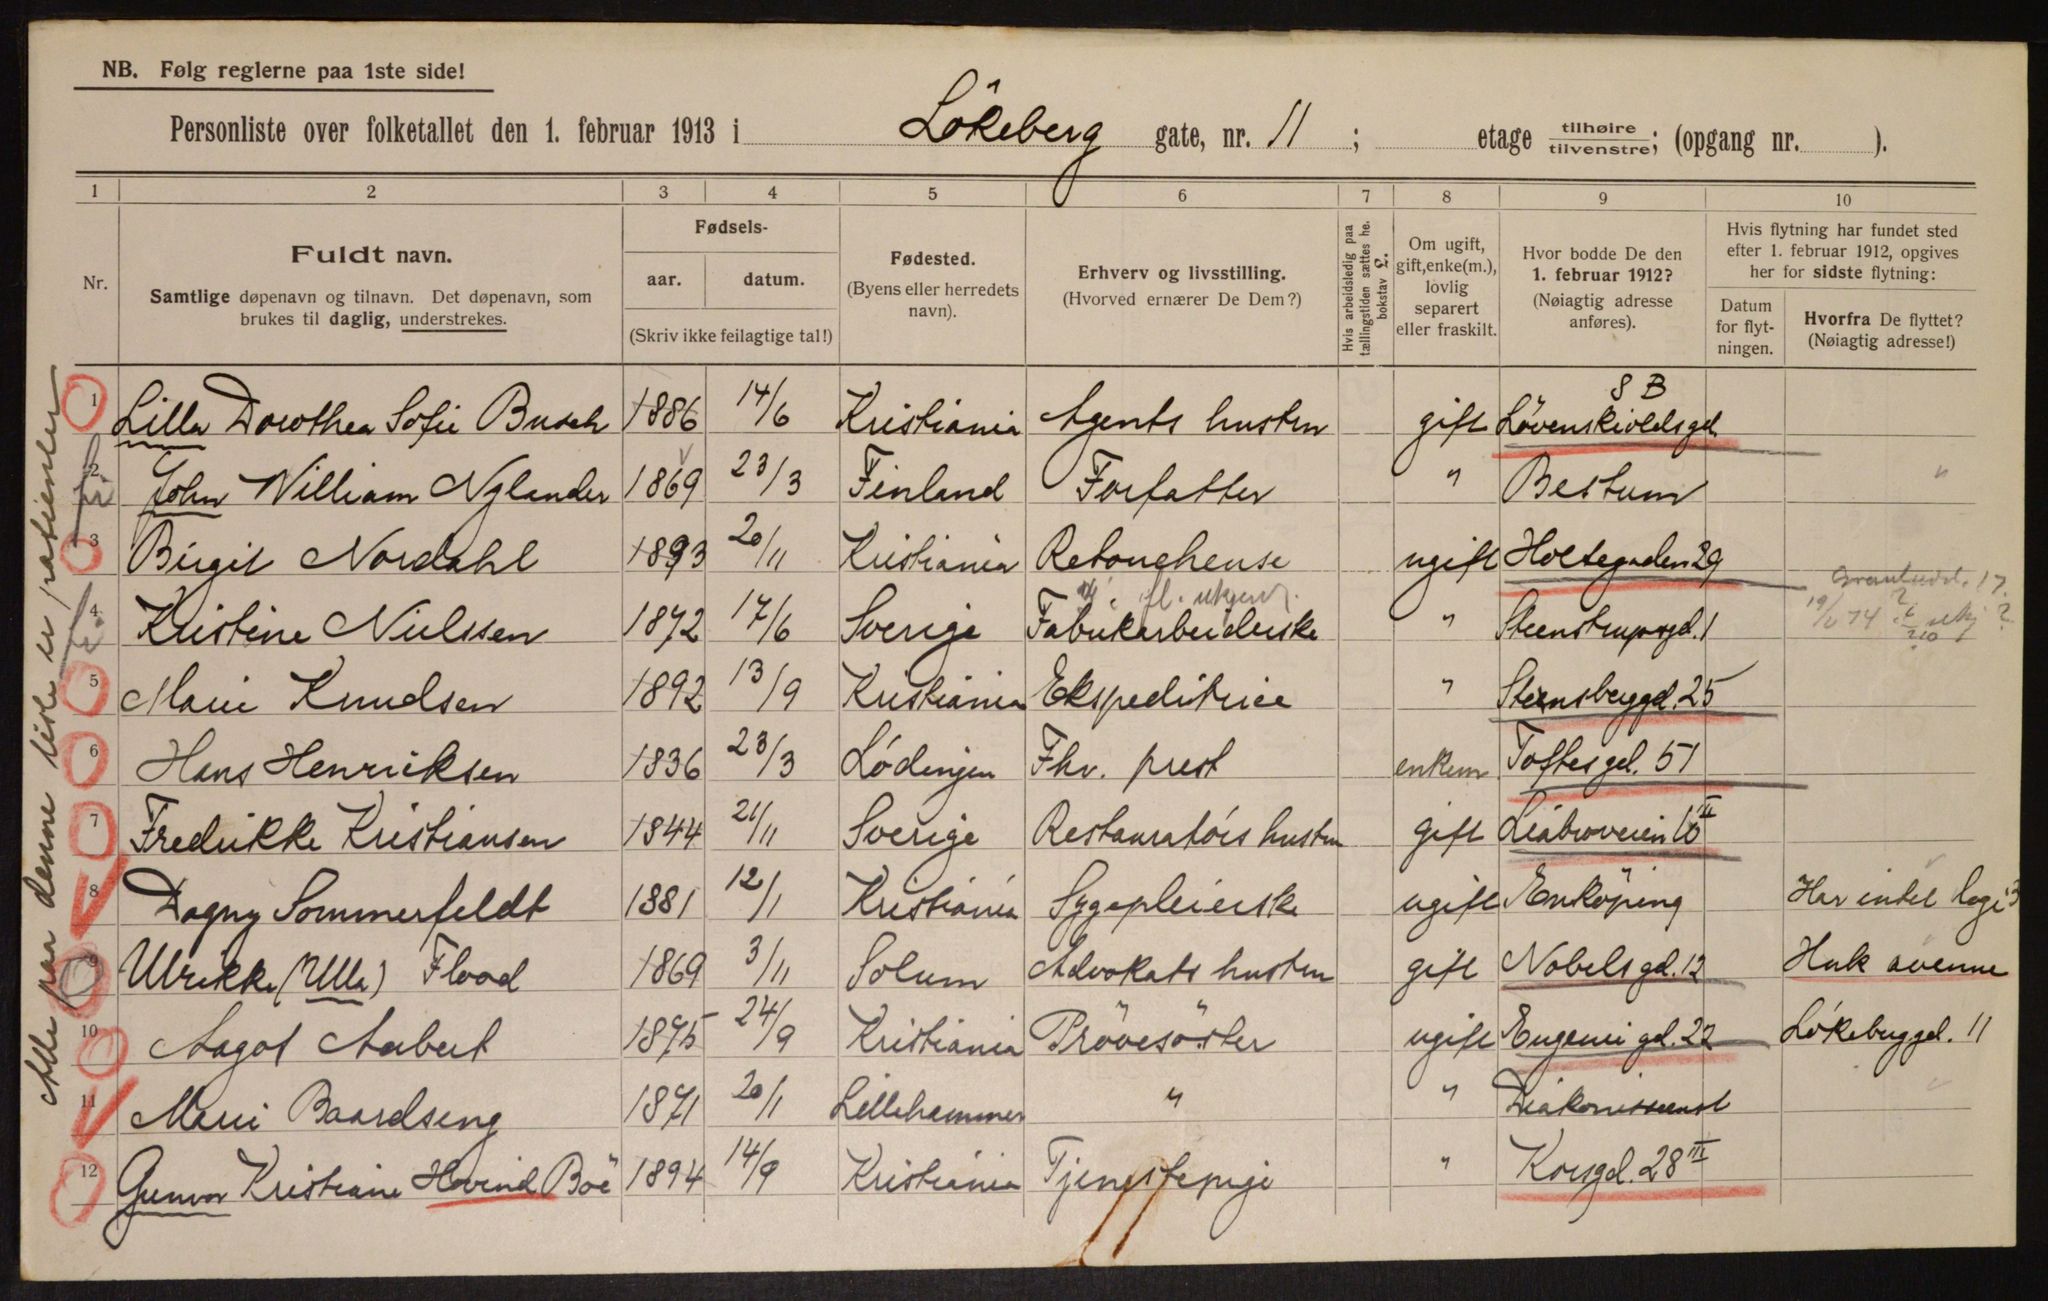 NB. Følg reglerne paa 1ste side!
Personliste over folketallet den 1. februar 1913 i Lökeberg gate, nr. 11 ; etage tilhøire tilvenstre; (opgang nr. ).
1 2 3 4 5 6 7 8 9 10
Nr.
Fuldt navn.
Samtlige døpenavn og tilnavn. Det døpenavn, som
brukes til daglig, understrekes.
Fødsels-
aar. datum.
(Skriv ikke feilagtige tal!)
Fødested.
(Byens eller herredets
navn).
Erhverv og livsstilling.
(Hvorved ernærer De Dem?)
Hvis arbeidsledig paa
tællingstiden sættes he.
bokstav £.
Om ugift,
gift, enke(m.),
lovlig
separert
eller fraskilt.
Hvor bodde De den
1. februar 1912?
(Nøiagtig adresse
anføres).
Hvis flytning har fundet sted
efter 1. februar 1912, opgives
her for sidste flytning:
Datum
for flyt-
ningen.
Hvorfra De flyttet?
(Nøiagtig adresse!)
8 B
1 Lilla Dorothea Sofie Busch 1886 14/6 Kristiania Agents hustru gift Lövenskioldsgd.
2 John William Nylander 1869 23/3 Finland Forfatter " Bestum "
3 Birgit Nordahl 1893 20/11 Kristiania Retoucheuse ugift Holtegaden 29
4 Kristine Nielssen 1872 17/6 Sverige Fabrikarbeiderske " Steenstrupsgd. 1
5 Marie Knudsen 1892 13/9 Kristiania Ekspeditrice " Stensberggd. 25
6 Hans Henriksen 1836 23/3 Lödingen Fhv. prest enkem Toftesgd. 51
7 Fredrikke Kristiansen 1844 21/11 Sverige Restauratörs hustru gift Liabroveien 10 II
8 Dagny Sommerfeldt 1881 12/1 Kristiania Sygepleierske ugift Enköping Har intet logi
9 Ulrikke (Ulla) Flood 1869 3/11 Solum Advokats hustru gift Nobels gd. 12 Huk avenue
10 Aagot Aubert 1875 24/9 Kristiania Prövesöster ugift Eugenie gd. 22 Lökebergd. 11
11 Marie Baardseng 1871 20/1 Lillehammer " " Diakonissenst
12 Gunvor Kristiane Hovind Böe 1894 14/9 Kristiania Tjenestepige " Korsgd. 28 III
Alle paa denne liste er patienter